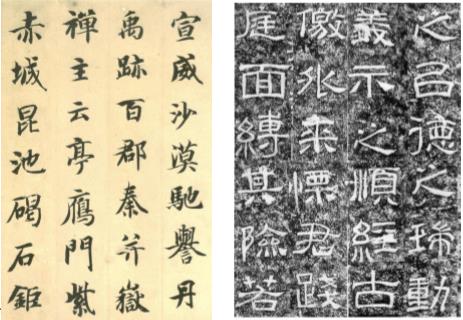 宣威沙漠馳譽丹
禹跡百郡秦并嶽
禪主云亭鴈門紫
赤城昆池碣石鉅
之以德之瑞動
義示之順經古
徼外來慄君踐
庭面縛其險若